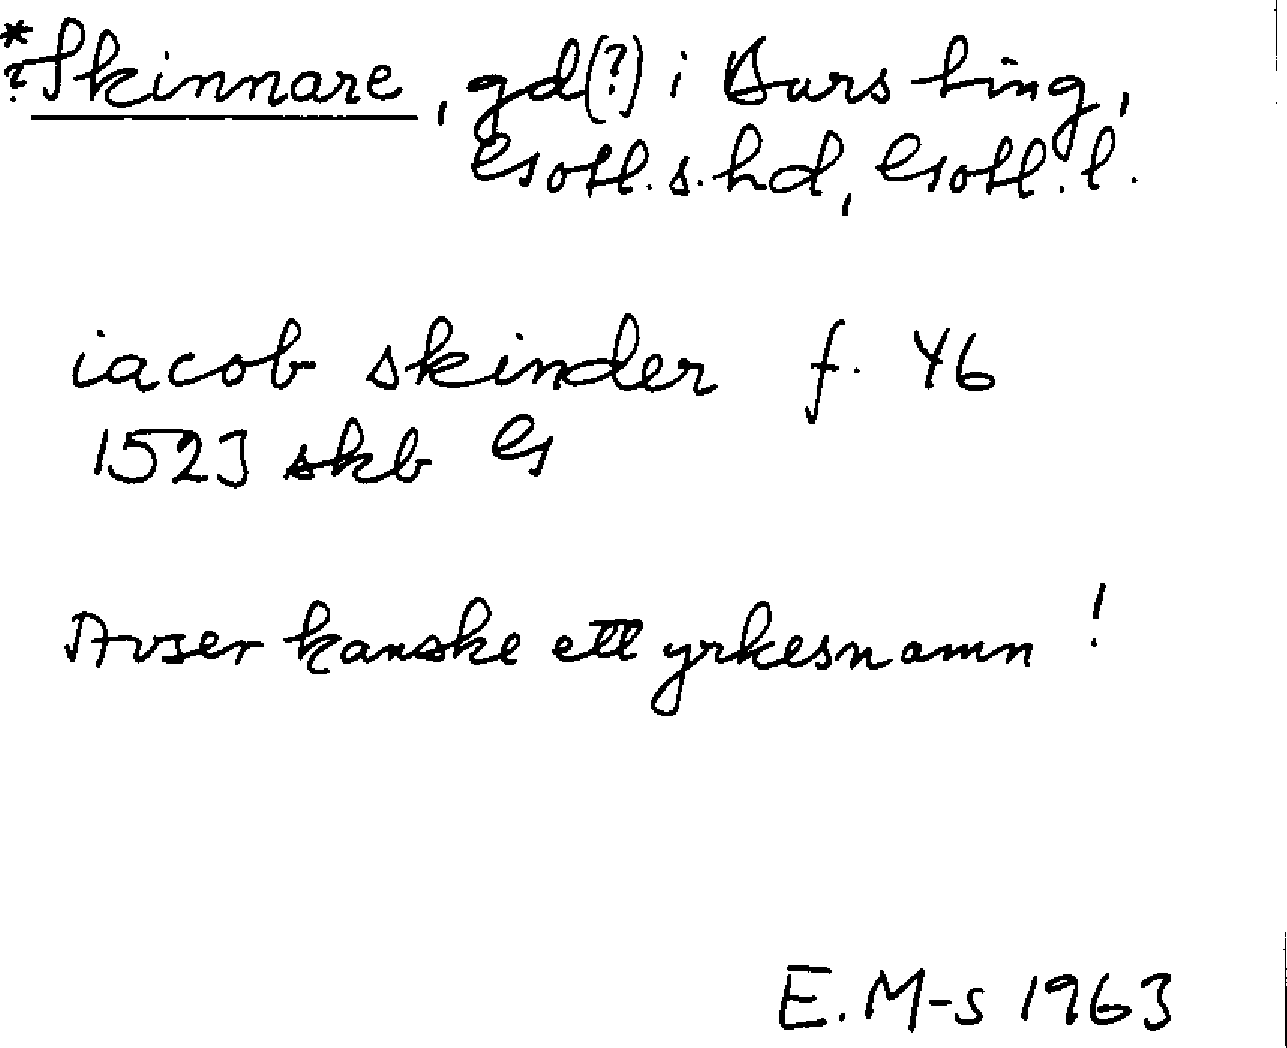 *?Skinnare, gd(?) i Burs ting,
Gotl. s. hd, Gotl. l.
iacob skinder f. 46
1523 skb G
Avser kanske ett yrkesnamn!
E. M-s 1963